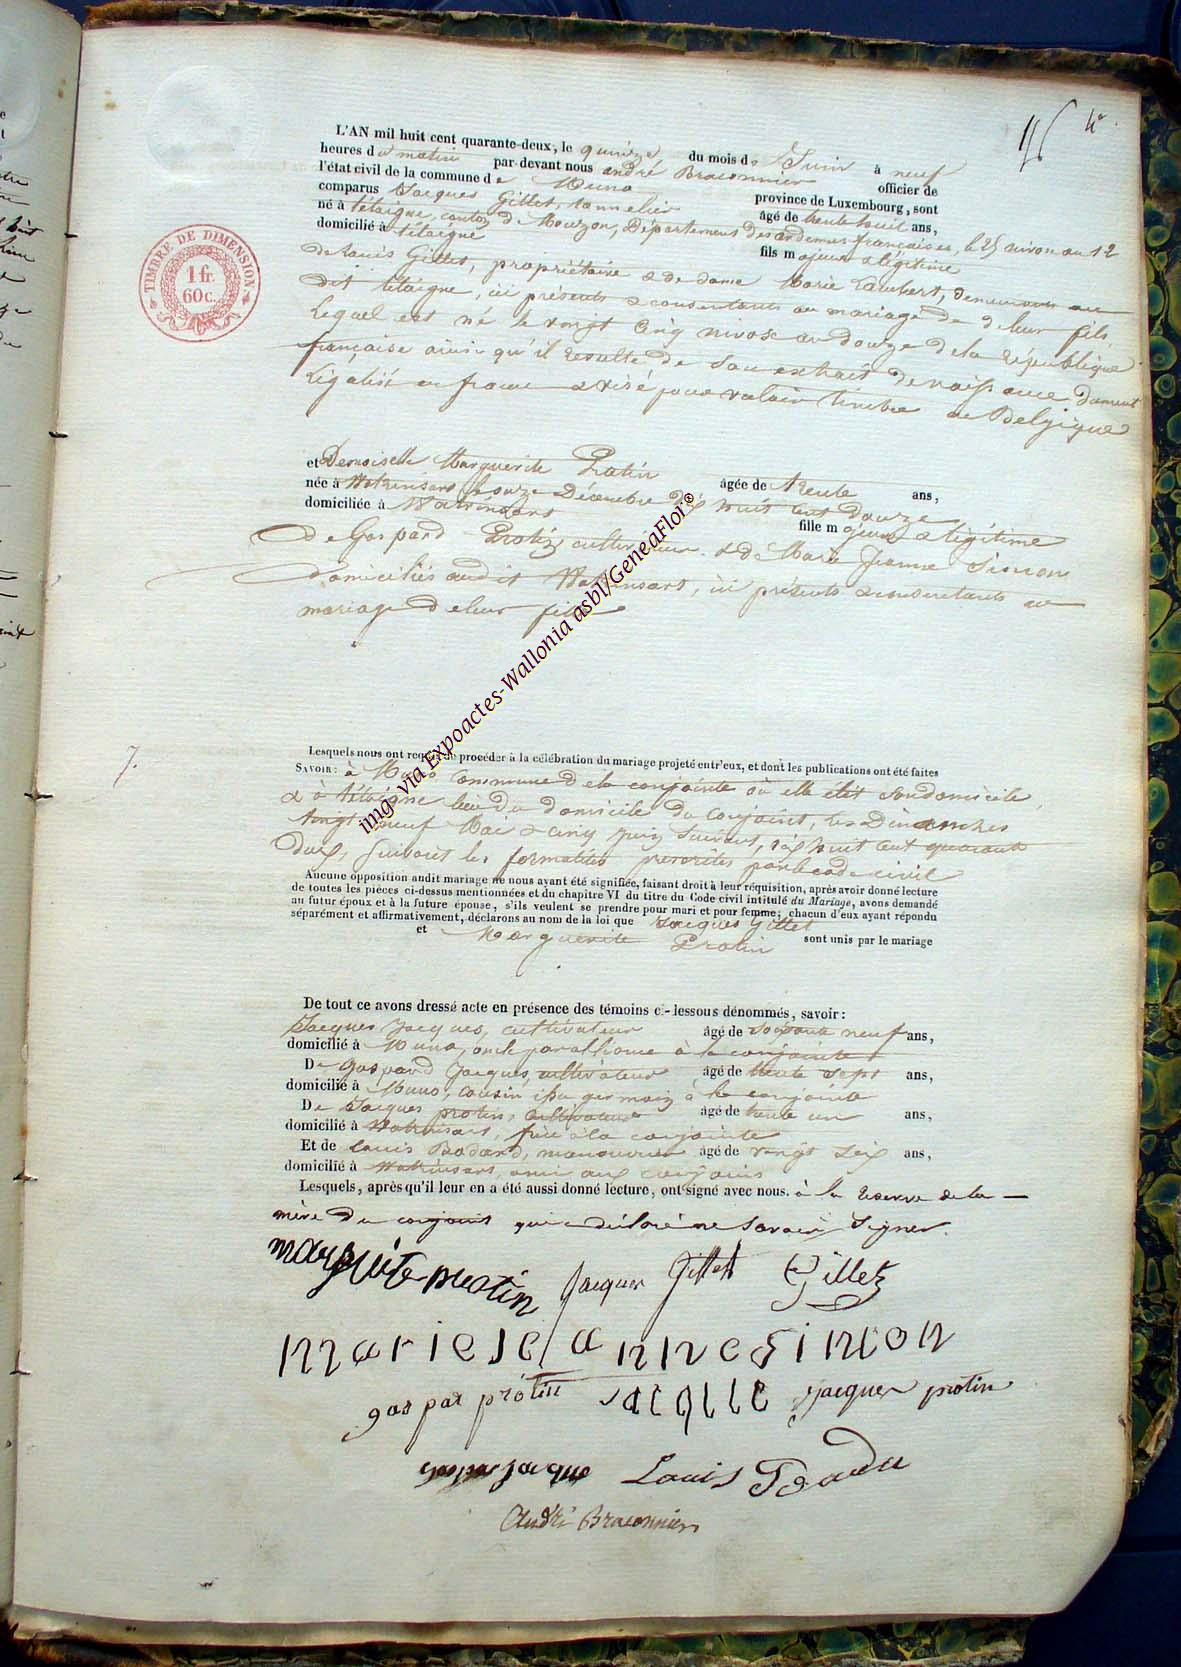 4e
L'AN mil huit cent quarante-deux, le quinze du mois de Juin à neuf
heures du matin par-devant nous andré Braconnier officier de
l'état civil de la commune de Muno province de Luxembourg, sont
comparus Jacques Gillet, âgé de trente huit ans,
né à tétaigne, canton de Mouzon, Département des ardennes françaises, le 25 nivose an 12
domicilié à tétaigne fils majeur & légitime
de Louis Gillet, propriétaire & de dame Marie Lambert, demeurants au
dit tétaigne, ici présents & consentants au mariage de leur fils,
Lequel est né le vingt cinq nivose an douze de la république
française ainsi qu'il résulte de son extrait de naissance dument
Légalisé en france & visé pour valoir timbre en Belgique
TIMBRE DE DIMENSION
1 fr.
60 c.
et Demoiselle Marguerite Protin âgée de trente ans,
née à Watrinsart le onze Décembre dix huit cent douze
domiciliée à Watrinsart fille majeure & légitime
de Gaspard Protin, cultivateur & de Marie Jeanne Simon
domiciliés audit Watrinsart, ici présents & consentants au
mariage de leur fille
img- via Expoactes-Wallonia asbl/GeneaFloi©
7.
Lesquels nous ont requis de procéder à la célébration du mariage projeté entr'eux, et dont les publications ont été faites
SAVOIR: à Muno Commune de la conjointe où elle élit son domicile,
& à tétaigne lieu du domicile du conjoint, les Dimanches
vingt neuf Mai & cinq juin suivant, dix huit cent quarante
deux, suivant les formalités prescrites par le code civil
Aucune opposition audit mariage ne nous ayant été signifiée, faisant droit à leur réquisition, après avoir donné lecture
de toutes les pièces ci-dessus mentionnées et du chapitre VI du titre du Code civil intitulé du Mariage, avons demandé
au futur époux et à la future épouse, s'ils veulent se prendre pour mari et pour femme; chacun d'eux ayant répondu
séparément et affirmativement, déclarons au nom de la loi que Jacques Gillet
et Marguerite Protin sont unis par le mariage
De tout ce avons dressé acte en présence des témoins ci-dessous dénommés, savoir:
Jacques Jacques, cultivateur âgé de soixante neuf ans,
domicilié à Muno, oncle par alliance à la conjointe
De gaspard Jacques, cultivateur âgé de trente sept ans,
domicilié à Muno, cousin issu germain à la conjointe
De Jacques protin, cultivateur âgé de trente un ans,
domicilié à Watrinsart, frère à la conjointe
Et de Louis Badard, manouvrier âgé de vingt six ans,
domicilié à Watrinsart, ami aux conjoints
Lesquels, après qu'il leur en a été aussi donné lecture, ont signé avec nous. à la réserve de la
mère du conjoint qui a déclaré ne savoir signer.
marguerite protin Jacques Gillet Gillet
marie jeanne simon
gaspar protin Jacque jacques protin
gaspar Jacque Louis
André Braconnier